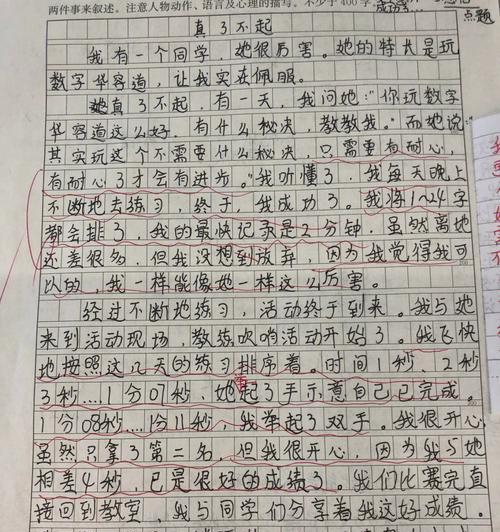 两件事来叙述。注意人物动作、语言及心理的描写。不少于400字。
点题
真了不起
我有一个同学，她很厉害。她的特长是玩
数字华容道，让我实在佩服。
她真了不起，有一天，我问她："你玩数字
华容道这么好，有什么秘诀，教教我。"而她说：
其实玩这个不需要什么秘诀，只需要有耐心，
有耐心了才会有进步。"我听懂了，我每天晚上
不断地去练习，终于，我成功了。我将1~24字
都会排了，我的最快记录是2分钟，虽然离她
还差很多，但我没想到放弃，因为我觉得我可
以的，我一样能像她一样这么厉害。
经过不断地练习，活动终于到来。我与她
来到活动现场，教练吹哨活动开始了。我飞快
地按照这几天的练习排序着。时间1秒、2秒
3秒...1分07秒，她起了手示意自己已完成。
1分08秒...1分11秒，我举起了双手。我很开心
虽然只拿了第二名，但我很开心，因为我与她
相差4秒，已是很好的成绩了。我们比赛完直
接回到教室，我与同学们分享着我这好成绩